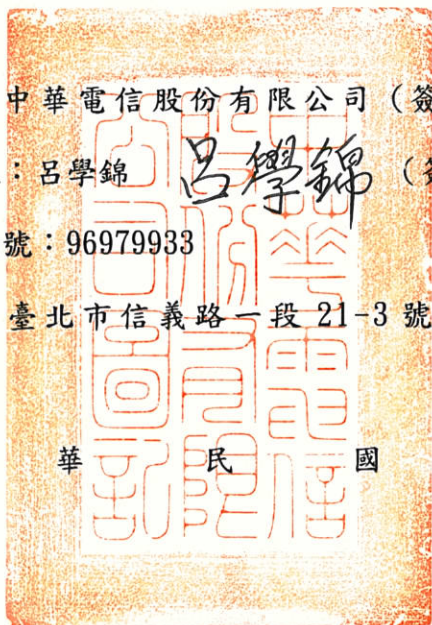 中華電信股份有限公司（簽
：呂學錦 呂學錦 （簽
號：96979933
臺北市信義路一段 21-3 號
華 民 國
中華電信
股份有限
公司圖記